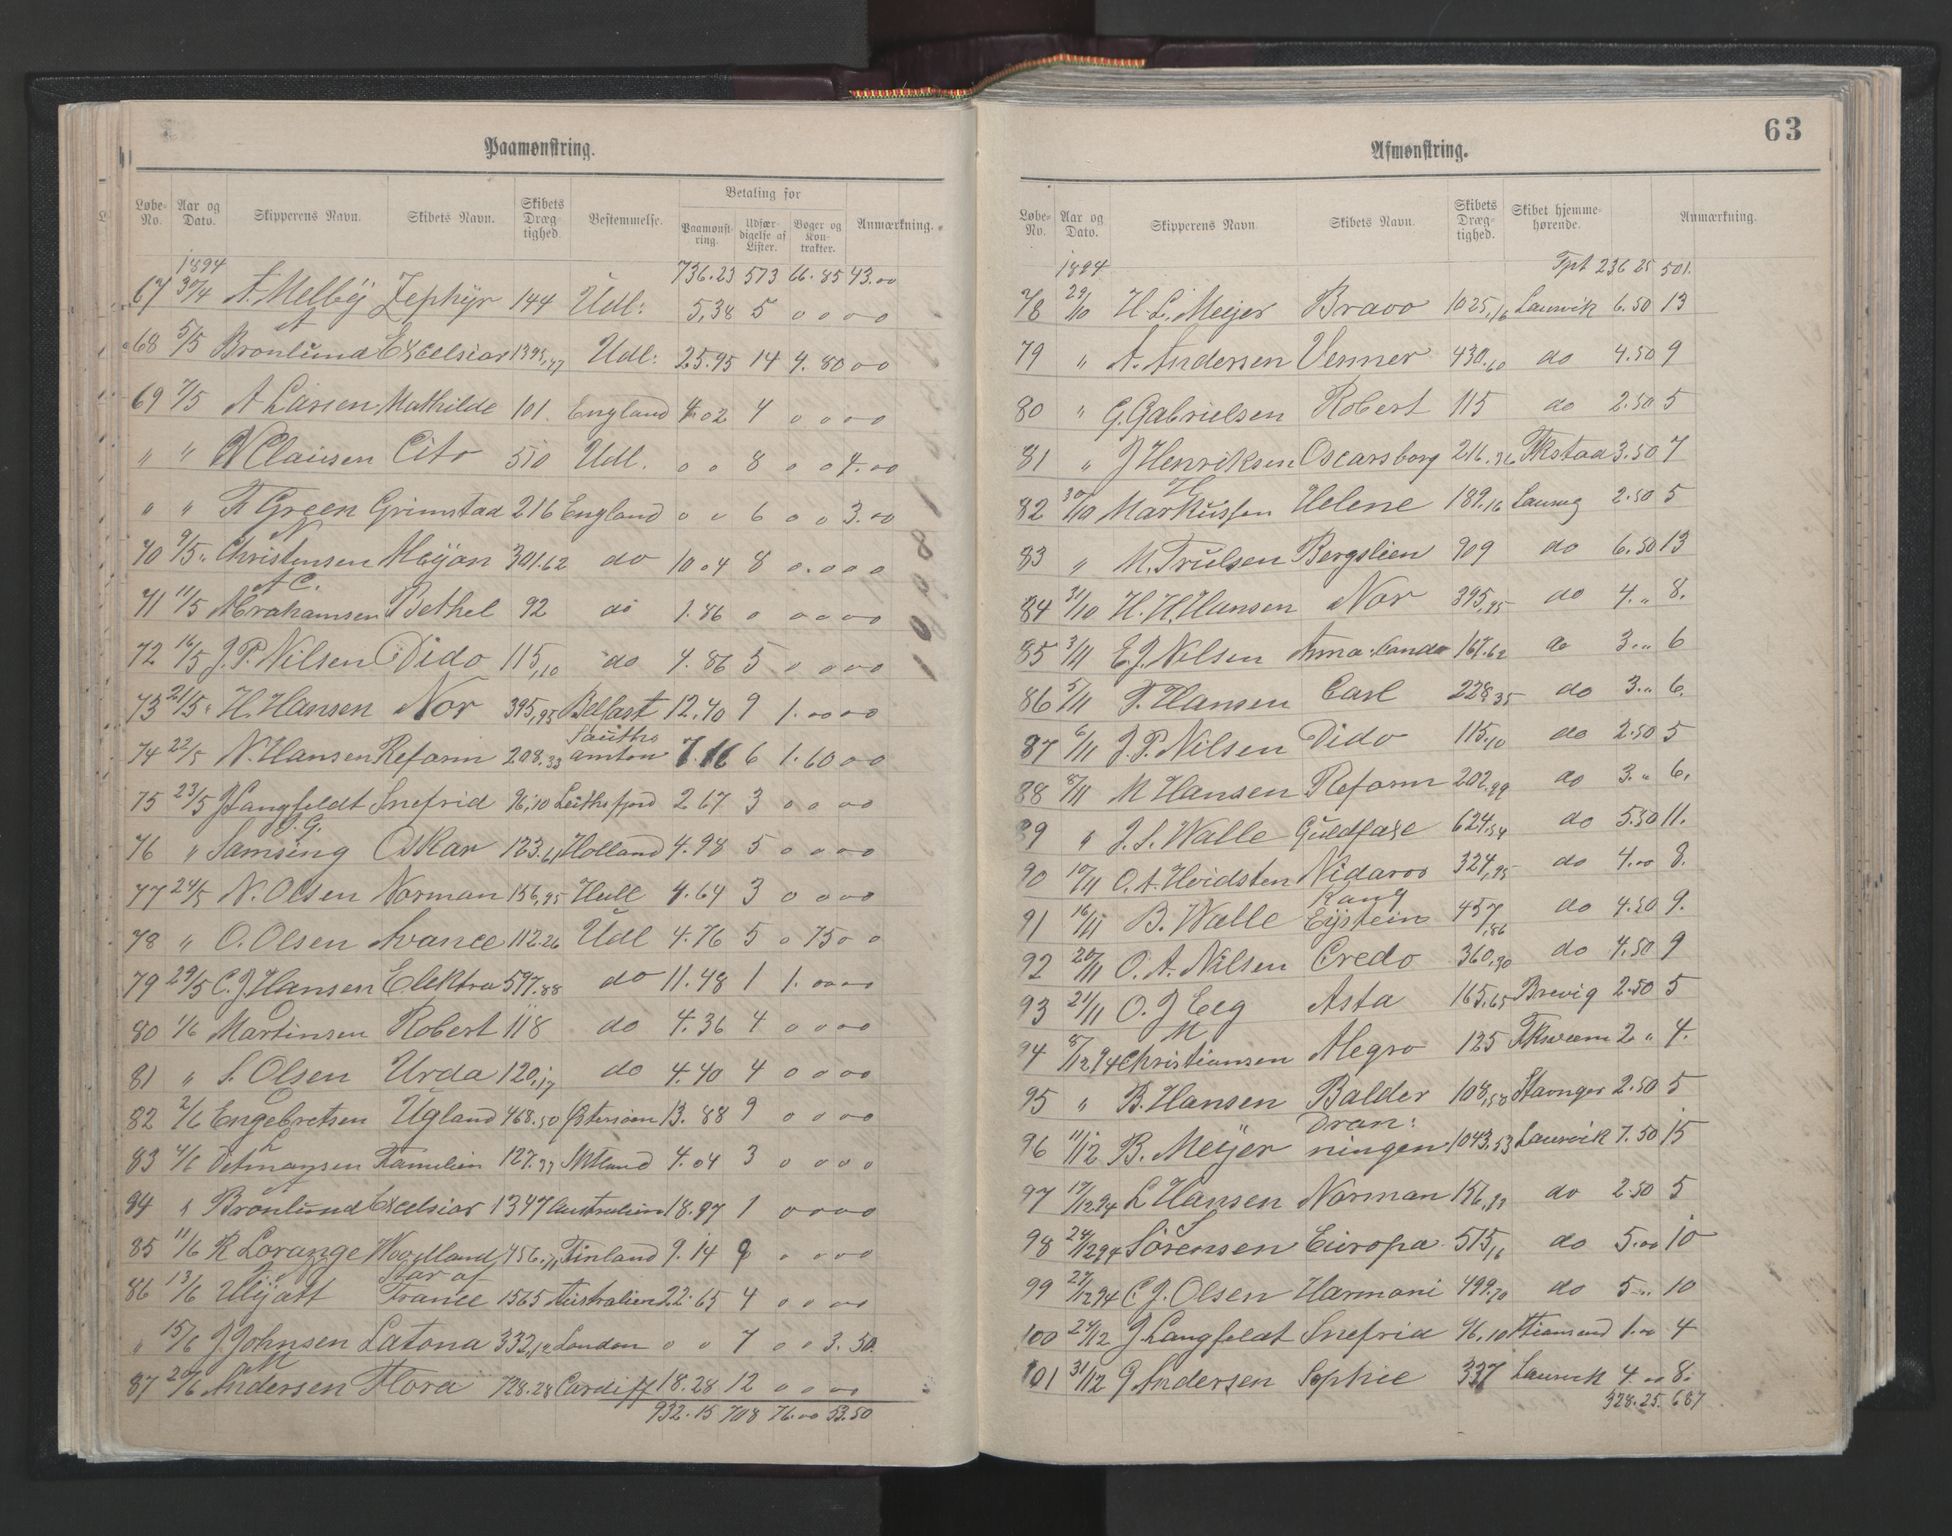 Paamønstring.
Løbe-No. Aar og Dato. Skipperens Navn. Skibets Navn. Skibets Dræg-tighed. Bestemmelse. Betaling for Paamønst-ring. Udfær-digelse af Lister. Bøger og Kon-trakter. Anmærkning.
1894 736.23 573 66.85 43.00
67 30/4 A. Melbÿ Zephÿr 144 Udl: 5,38 5 0 0 0 0
68 5/5 A Bronlund Excelsior 1395,77 Udl: 25.95 14 9.80 0 0
69 7/5 A Larsen Mathilde 101. England 4.02 4 0 0 0 0
" " N Clausen Cito 510 Udl. 0 0 8 0 0 4.00
" " F Green Grimstad 216 England 0 0 6 0 0 3.00
70 9/5 N Christensen Meÿan 301.62 do 10 04 8 0.0 0 0
71 11/5 A C. Abrahamsen Bethel 92 do 1.86 0 0 0 0 0
72 16/5 J. P. Nilsen Dido 115,10 do 4.86 5 0 0 0 0
73 21/5 H. Hansen Nor 395,95 Belfast 12.40 9 1.00 0 0
74 22/5 N. Hansen Reform 208.33 Southamton 7.16 6 1.60 0 0
75 23/5 J Langfeldt Snefrid 96,10 Leithsfjord 2 67 3 0 0 0 0
76 " J. G. Samsing Oskar 123.61 Holland 4.98 5 0 0 0 0
77 24/5 N. Olsen Norman 156,95 Hull 4.64 3 0 0 0 0
78 " O. Olsen Avance 112.26 Udl 4.76 5 0 75 0 0
79 29/5 C. J Hansen Elektra 597.88 do 11.48 1 1.00 0 0
80 1/6 Martinsen Robert 118 do 4.36 4 0 0 0 0
81 " S. Olsen Urda 120,17 do 4.40 4 0 0 0 0
82 2/6 Engebretsen Ugland 468.50 Østersøen 13.88 9 0 0 0 0
83 4/6 Familien 127.37 4.04 3 0 0 0 0
84 " Bronlund Excelsior 1347 Australien 18.97 1 0 0 0 0
85 11/6 R Lorange Woodland 756.11 Finland 9.14 9 0 0 0 0
86 13/6 Star of France 1565 Australien 22.65 4 0 0 0 0
" 15/6 J. Johnsen Latona 332,12 London 0 0 7 0 0 3.50.
87 20/6 M Andersen Flora 728.28 Cardiff 18.28 12 0 0 0 0
932.15 708 76.00 53.50
63
Afmønstring.
Løbe-No. Aar og Dato. Skipperens Navn. Skibets Navn. Skibets Dræg-tighed. Skibet hjemme-hørende. Anmærkning.
1894 Tpt 236 25 501.
78 29/10 H. L. Meijer Bravo 1025,16 Laurvik 6.50 13
79 " A. Andersen Venner 430.60 do 4.50 9
80 " G. Gabrielsen Robert 115 do 2.50 5
81 " J Henriksen Oscarsborg 216.36 Fkstad 3.50 7
82 30/10 H Markussen Helene 189.16 Laurvig 2.50 5
83 " M. Trulsen Bergslien 909 do 6.50 13
84 31/10 H. H. Hansen Nor 395,95 do 4." 8.
85 3/11 E. J. Nilsen 167.62 do 3." 6
86 5/11 T. Hansen Carl 228,35 do 3." 6.
87 6/11 J. P. Nilsen Dido 115.10 do 2.50 5
88 8/11 M Hansen Reform 202,99 do 3." 6.
89 " J. S. Walle Guldfaxe 624,54 do 5.50 11.
90 10/11 O. A. Hvidsten Nidaros 324,95 do 4.00 8.
91 16/11 B. Walle Kong Eÿstein 457,86 do 4.50 9.
92 20/11 O. A. Nilsen Credo 360,30 do 4.50 9
93 21/11 O. J Eeg Asta 165.65 Brevig 2.50 5
94 8/12 94 M Christiansen Alegro 125 2 " 4.
95 " B. Hansen Balder 108,58 Stavnger 2.50 5
96 11/12 B. Meÿer Dronningen 1043,53 Laurvik 7.50 15
97 17/12 94 L Hansen Norman 156,97 do 2.50 5
98 24/12 94 S Sörensen Europa 515,16 do 5.00 10
99 27/12 94 C. J. Olsen Harmoni 499.70 do 5." 10
100 24/12 J Langfeldt Snefrid 96,10 1.00 4
101 31/12 G Andersen Sophie 337 Laurvik 4.00 8.
328.25. 687